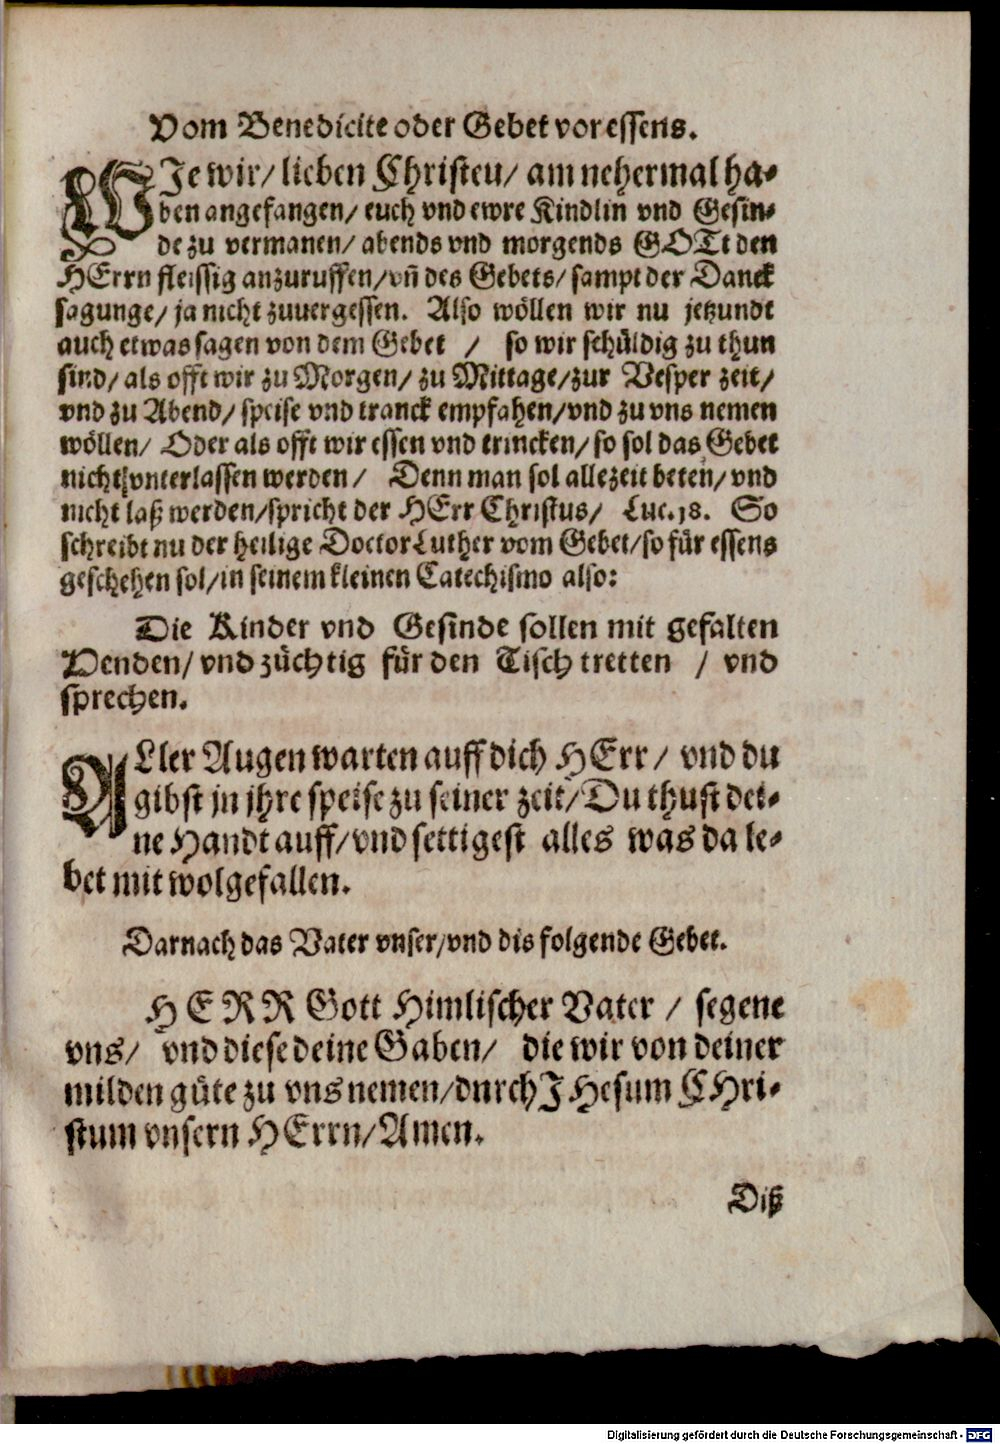 Vom Benedicite oder Gebet vor essens.
WIe wir/ lieben Christen/ am nehermal ha-
ben angefangen/ euch vnd ewre Kindlin vnd Gesin-
de zu vermanen/ abends vnd morgends GOTt den
HErrn fleissig anzuruffen/ vn̄ des Gebets/ sampt der Danck
sagunge/ ja nicht zuuergessen. Also wöllen wir nu jetzundt
auch etwas sagen von dem Gebet / so wir schüldig zu thun
sind/ als offt wir zu Morgen/ zu Mittage/ zur Vesper zeit/
vnd zu Abend/ speise vnd tranck empfahen/ vnd zu vns nemen
wöllen/ Oder als offt wir essen vnd trincken/ so sol das Gebet
nicht vnterlassen werden/ Denn man sol allezeit beten/ vnd
nicht laß werden/ spricht der HErr Christus/ Luc. 18. So
schreibt nu der heilige Doctor Luther vom Gebet/ so für essens
geschehen sol/ in seinem kleinen Catechismo also:
Die Kinder vnd Gesinde sollen mit gefalten
Henden/ vnd züchtig für den Tisch tretten / vnd
sprechen.
ALler Augen warten auff dich HErr/ vnd du
gibst jn jhre speise zu seiner zeit/ Du thust dei-
ne Handt auff/ vnd settigest alles was da le-
bet mit wolgefallen.
Darnach das Vater vnser/ vnd dis folgende Gebet.
HERR Gott Himlischer Vater / segene
vns/ vnd diese deine Gaben/ die wir von deiner
milden güte zu vns nemen/ durch JHesum CHri-
stum vnsern HErrn/ Amen.
Diß
Digitalisierung gefördert durch die Deutsche Forschungsgemeinschaft - DFG